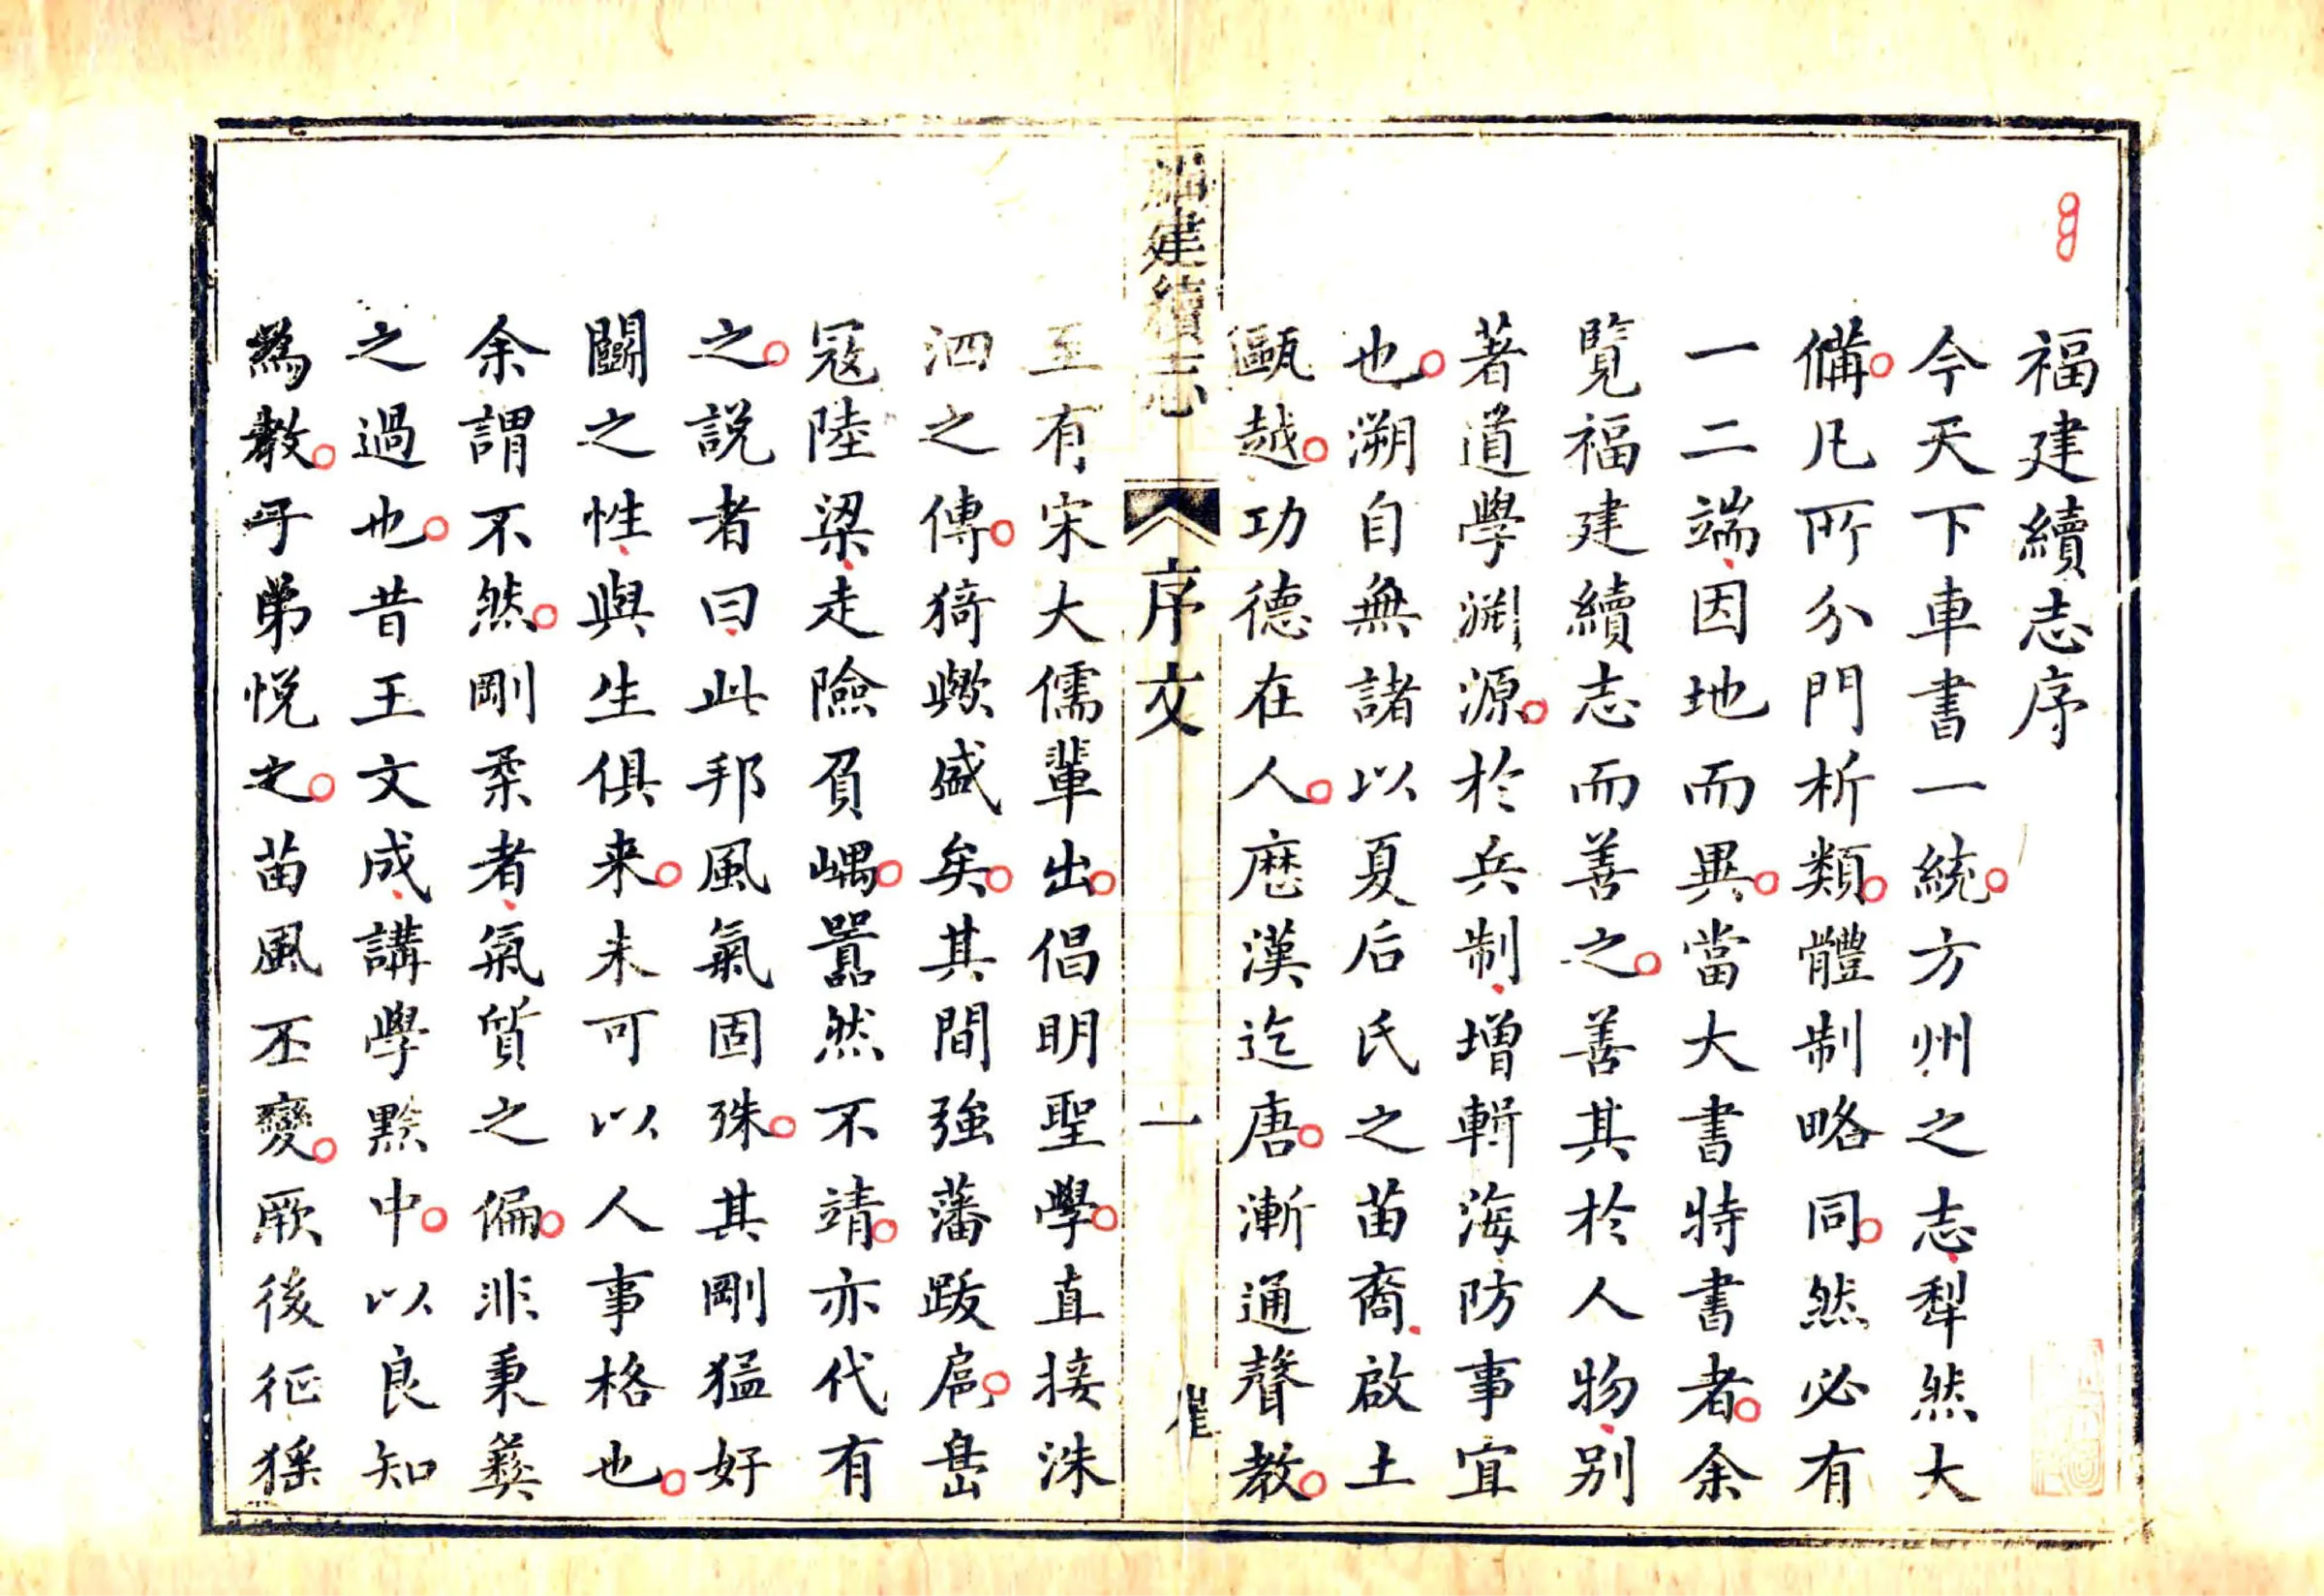 福建續志序
今天下車書一統方州之志犁然大
備凡所分門析類體制略同然必有
一二端因地而異當大書特書者余
覽福建續志而善之善其於人物別
著道學淵源於兵制增輯海防事宜
也溯自無諸以夏后氏之苗裔啟土
甌越功德在人歷漢迄唐漸通聲教
福建續志
序文
一
崔
至有宋大儒輩出倡明聖學直接洙
泗之傳猗歟盛矣其間強藩跋扈島
寇陸梁走險負嵎囂然不靖亦代有
之說者曰此邦風氣固殊其剛猛好
鬭之性與生俱来未可以人事格也
余謂不然剛柔者氣質之偏非秉彝
之過也昔王文成講學黔中以良知
為教子弟悅之苗風丕變厥後征猺